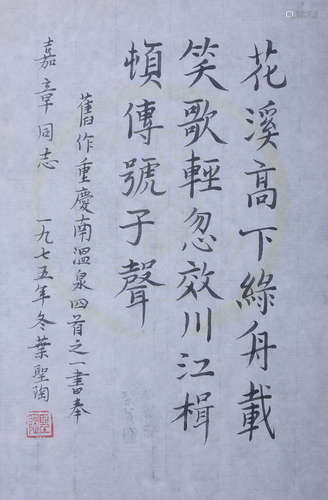 花溪高下綠舟載
笑歌輕忽效川江楫
頓傳號子聲
舊作重慶南溫泉四首之一書奉
嘉章同志 一九七五年冬葉聖陶